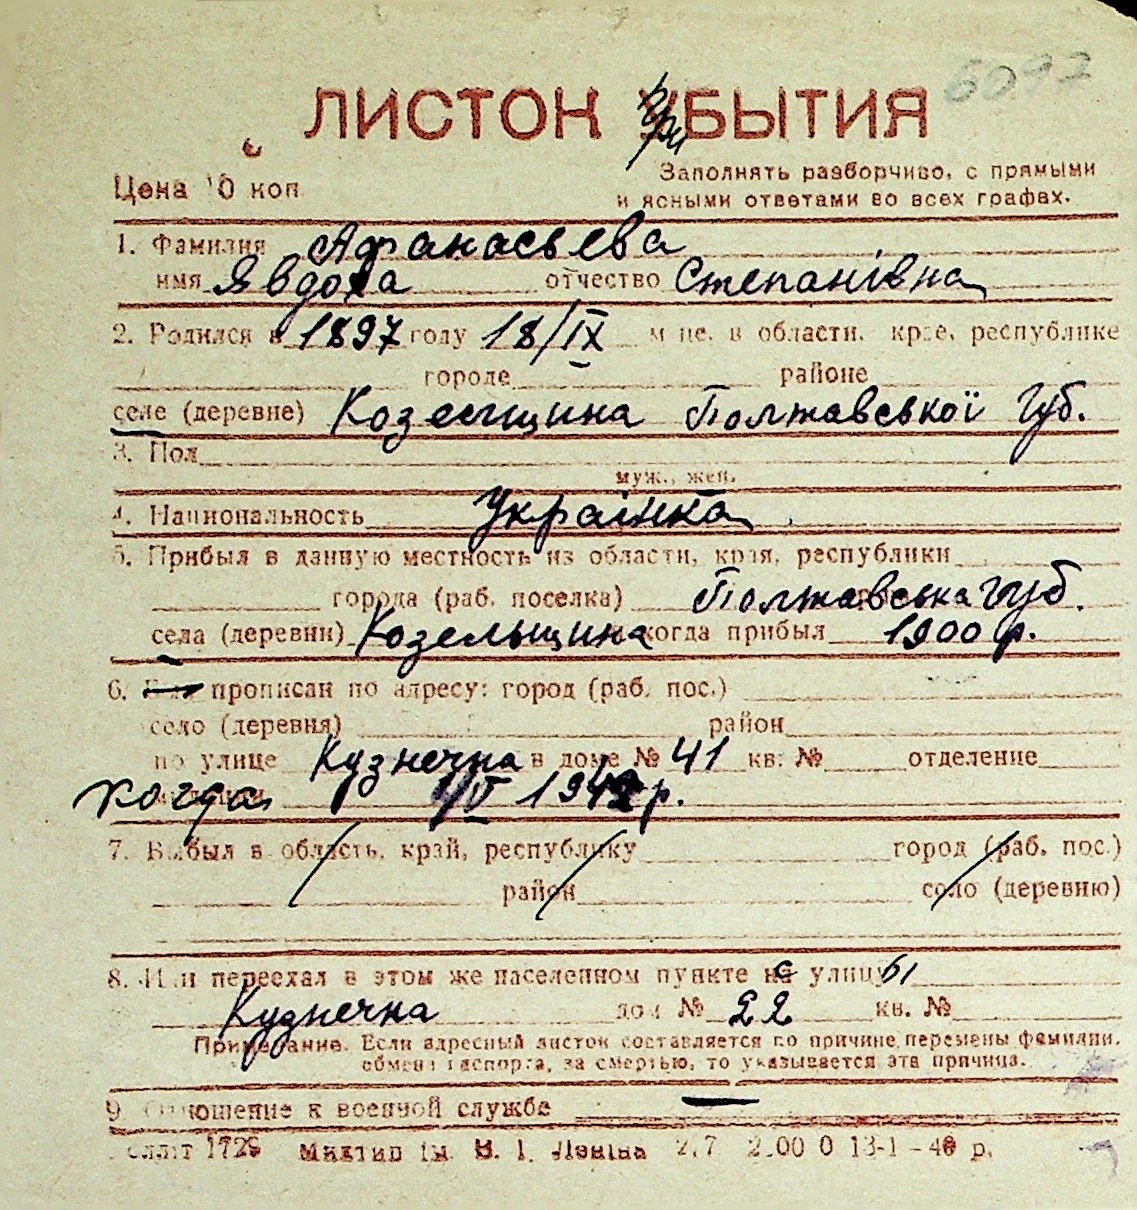 6092
ЛИСТОК ПриБЫТИЯ
Цена 10 коп
Заполнять разборчиво, с прямыми
и ясными ответами во всех графах.
1. Фамилия Афанасьева
имя Явдоха отчество Степанівна
2. Родился в 1897 году 18/IX м-це, в области, крае, республике
городе районе
селе (деревне) Козельщина Полтавської губ.
3. Пол
муж., жен.
4. Национальность Українка
5. Прибыл в данную местность из области, края, республики
города (раб. поселка) Полтавська губ.
села (деревни) Козельщина когда прибыл 1900 р.
6. Был прописан по адресу: город (раб. пос.)
село (деревня) район
по улице Кузнечна в доме № 41 кв. № отделение
когда 1942 р.
7. Выбыл в область, край, республику город (раб. пос.)
район село (деревню)
8. Или переехал в этом же населенном пункте с улицы
Кузнечна дом № 22 кв. №
Примечание. Если адресный листок составляется по причине перемены фамилии,
обмена паспорта, за смертью, то указывается эта причина.
9. Отношение к военной службе —
1729 ім. В. І. Леніна 13-1-40 р.